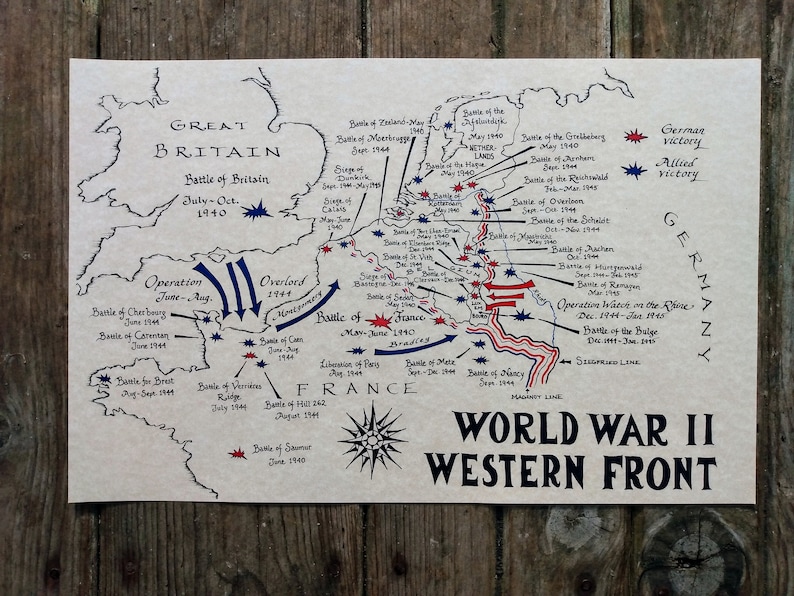 GREAT
BRITAIN
Battle of Britain
July-Oct.
1940
Battle of Zeeland-May
1940
Battle of Moerbrugge
Sept. 1944
Siege of
Dunkirk
Sept. 1944-May 1945
Siege of
Calais
May-June
1940
Battle of the
Afsluitdijk
May 1940
NETHER-
LANDS
Battle of the Hague
May 1940
Battle of
Rotterdam
May 1940
Battle of the Grebbeberg
May 1940
Battle of Arnhem
Sept. 1944
Battle of the Reichswald
Feb.-Mar. 1945
Battle of Overloon
Sept.-Oct. 1944
Battle of the Scheldt
Oct.-Nov. 1944
Battle of Maastricht
May 1940
Battle of Aachen
Oct. 1944
Battle of Hurtgenwald
Sept. 1944-Feb. 1945
Battle of Remagen
Mar. 1945
Operation Watch on the Rhine
Dec. 1944-Jan. 1945
Battle of the Bulge
Dec. 1944-Jan. 1945
SIEGFRIED LINE
MAGINOT LINE
German
victory
Allied
victory
GERMANY
Battle of Fort Eben-Emael
May 1940
Battle of Elsenborn Ridge
Dec. 1944
Battle of St. Vith
Dec. 1944
BELGIUM
Siege of
Bastogne-Dec.
Battle of
Clervaux-Dec.
Battle of Sedan
May 1940
Operation
June-Aug.
Overlord
1944
Montgomery
Battle of Cherbourg
June 1944
Battle of Carentan
June 1944
Battle for Brest
Aug-Sept. 1944
Battle of Caen
June-Aug.
1944
Battle of Verrières
Ridge
July 1944
Battle of Hill 262
August 1944
Battle of France
May-June 1940
Liberation of Paris
Aug. 1944
Bradley
Battle of Metz
Sept.-Dec. 1944
Battle of Nancy
Sept. 1944
FRANCE
Battle of Saumur
June 1940
WORLD WAR II
WESTERN FRONT